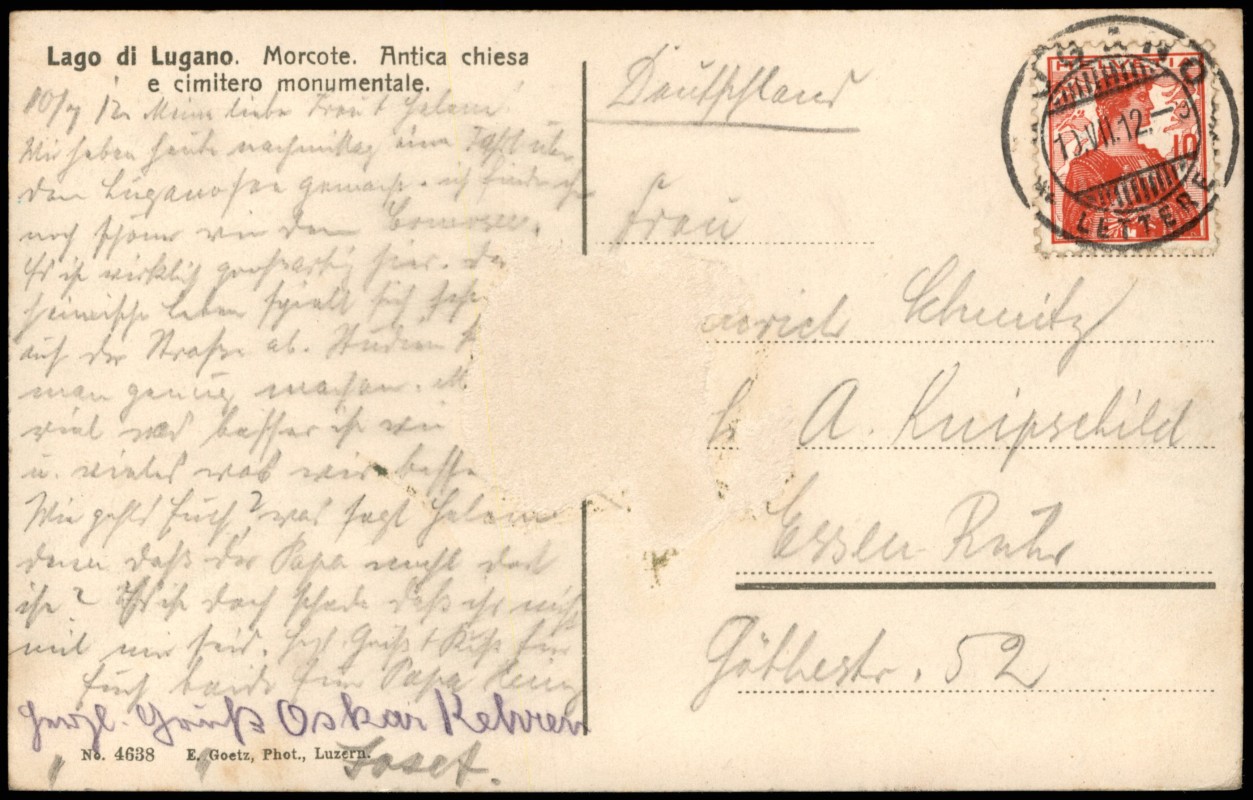 Lago di Lugano. Morcote. Antica chiesa
e cimitero monumentale.
10/7 12. Meine liebe Frau u. Helene!
Wir haben heute nachmittag eine Fahrt über
den Luganosee gemacht. ich finde ihn
noch schöner wie den Comersee.
Es ist wirklich großartig hier. Das
heimische Leben spielt sich
auf der Straße ab. Studien
man genug machen.
viel was besser ist wie
u. vieles was wir besse
Wie gehts Euch? was sagt Helene
denn daß der Papa nicht dort
ist? Es ist doch schade daß ihr nicht
mit mir seid. Herzl. Gruß + Kuß für
Euch beide Euer Papa Heinz
Herzl. Gruß Oskar Kehren
" " Josef.
No. 4638 E. Goetz, Phot., Luzern.
Deutschland
Frau
nrich Schmitz
b. A. Knipschild
Essen-Ruhr
Göthestr. 52
10.VII.12.
LETTERE
10